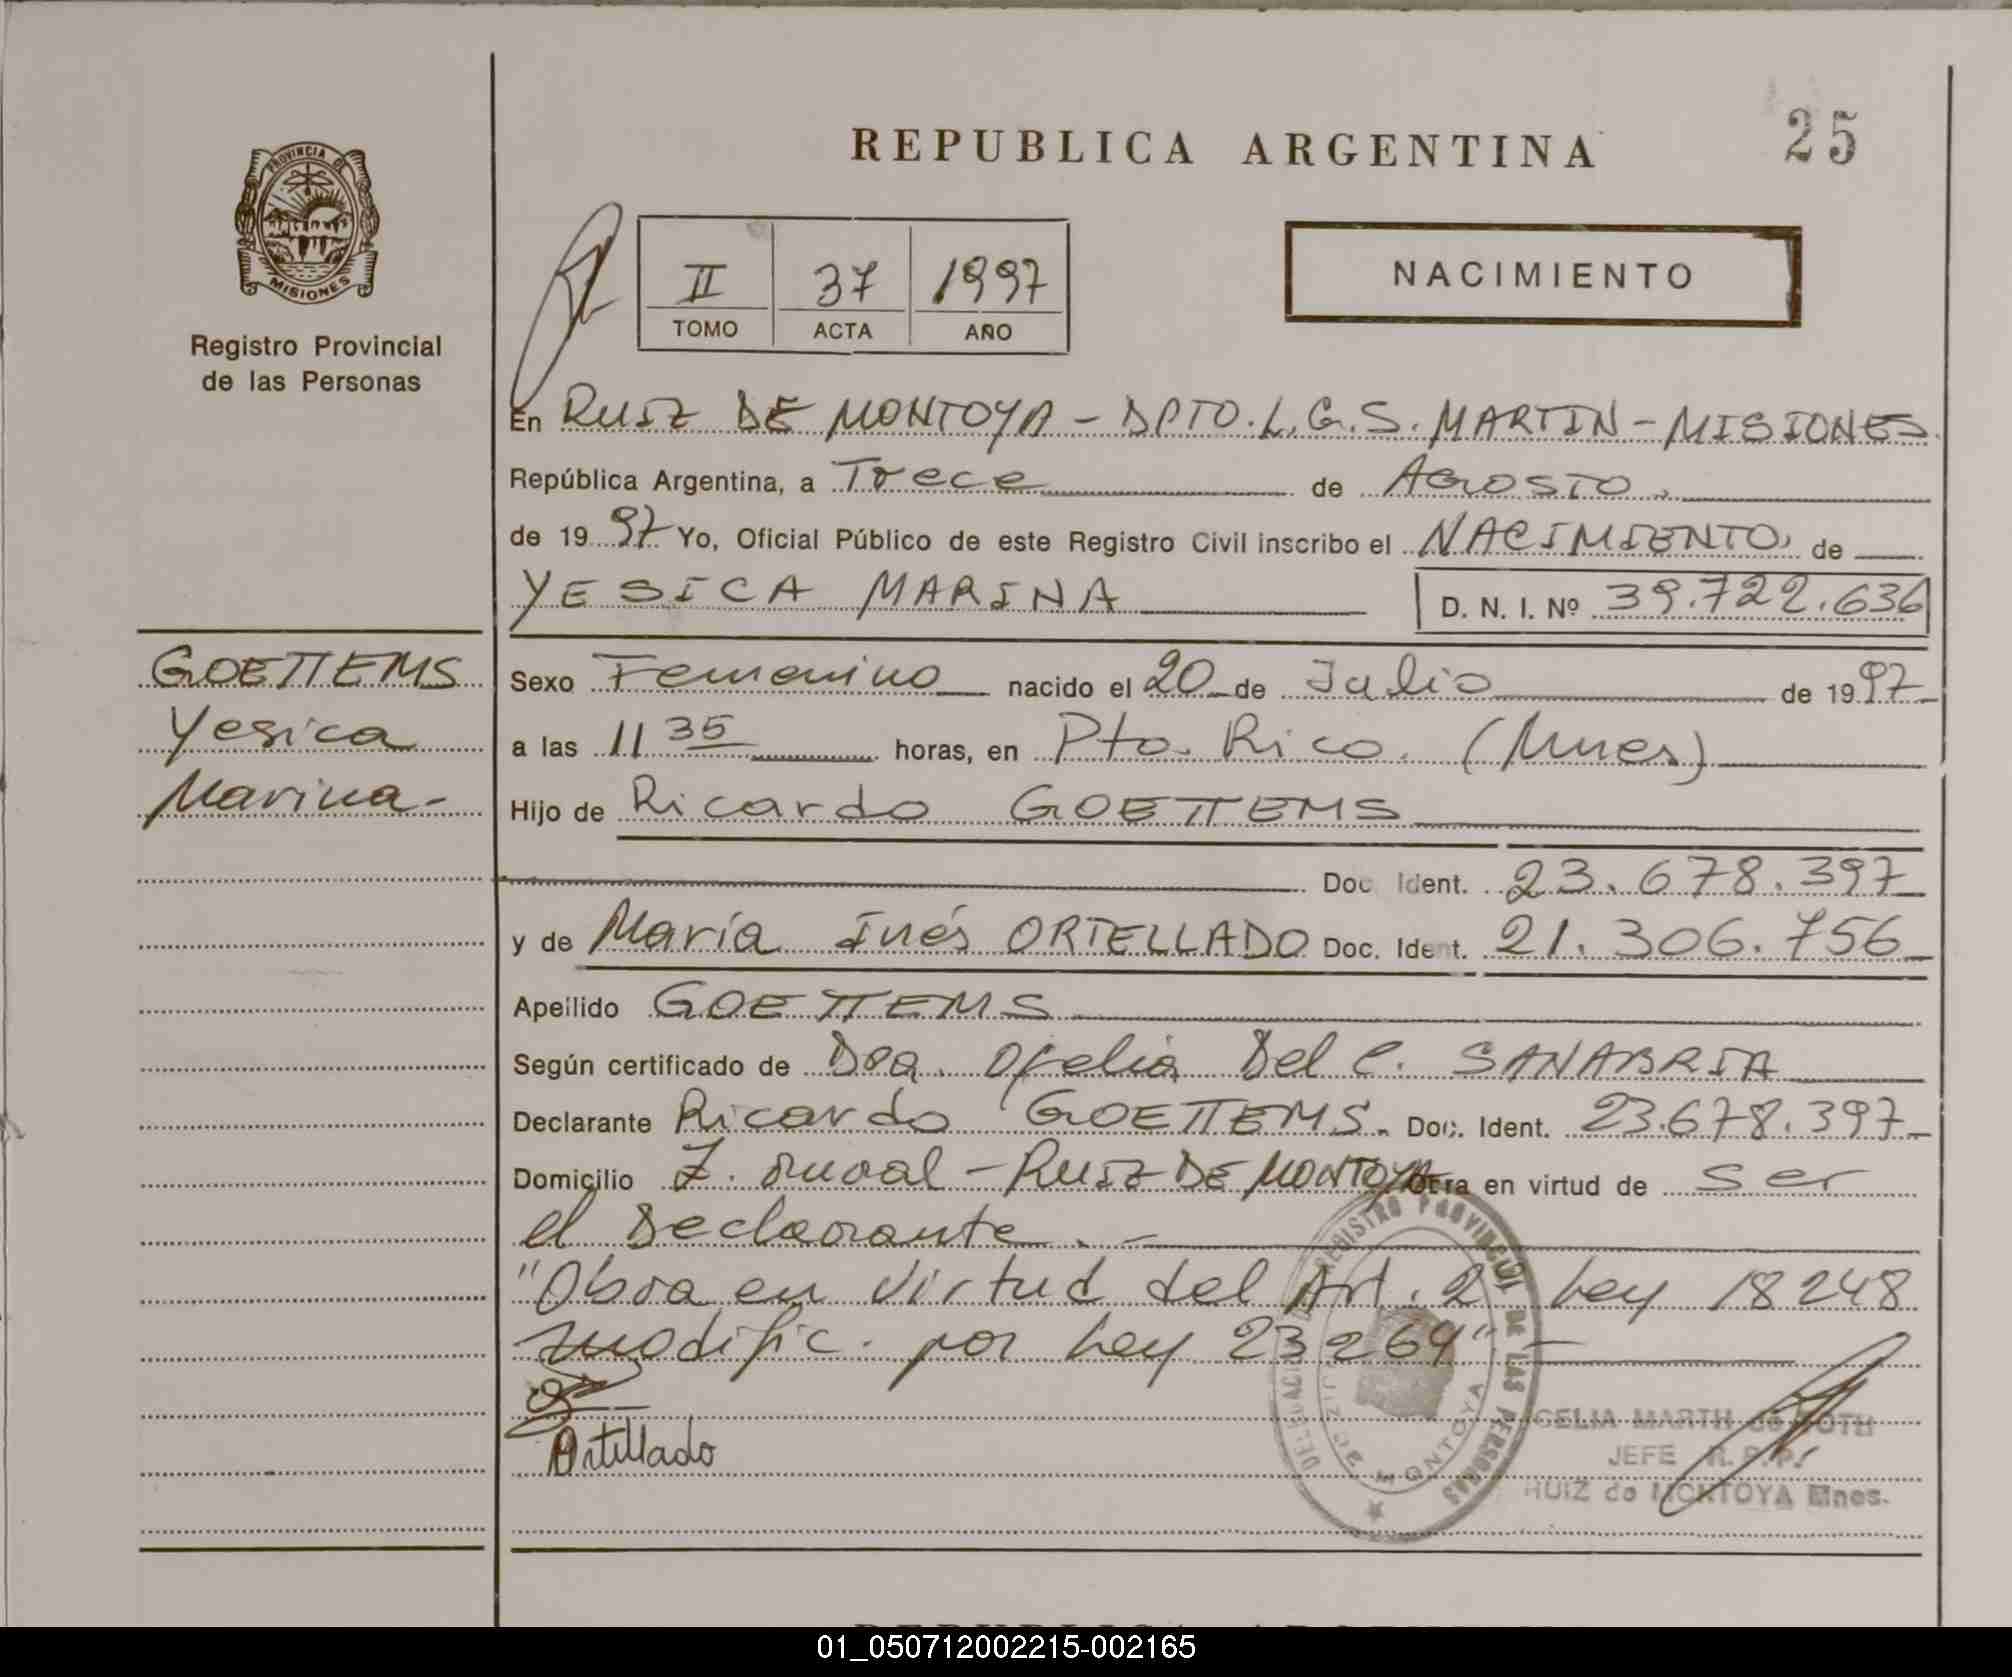 REPUBLICA ARGENTINA
25
PROVINCIA DE
MISIONES
Registro Provincial
de las Personas
II 37 1997
TOMO ACTA AÑO
NACIMIENTO
En RUIZ DE MONTOYA - DPTO. L. G. S. MARTIN - MISIONES
República Argentina, a Trece de AGOSTO
de 1997 Yo, Oficial Público de este Registro Civil inscribo el NACIMIENTO de
YESICA MARINA D. N. I. Nº 39.722.636
GOETTEMS
Yesica
Marina-
Sexo Femenino nacido el 20 de Julio de 1997
a las 11 35 horas, en Pto. Rico. (Mnes)
Hijo de Ricardo GOETTEMS
Doc Ident. 23.678.397
y de María Inés ORTELLADO Doc. Ident. 21.306.756
Apellido GOETTEMS
Según certificado de Dra. Ofelia Del C. SANABRIA
Declarante Ricardo GOETTEMS. Doc. Ident. 23.678.397
Domicilio Z. rural - RUIZ DE MONTOYA Obra en virtud de ser
el Declarante. -
"Obra en virtud del Art. 2 Ley 18248
modific. por Ley 23264" -
Ortillado
DELEGACION REGISTRO PROVINCIAL DE LAS PERSONAS
RUIZ DE MONTOYA
CELIA MARTH de ROTH
JEFE R.P.P.
RUIZ de MONTOYA Mnes.
01_050712002215-002165